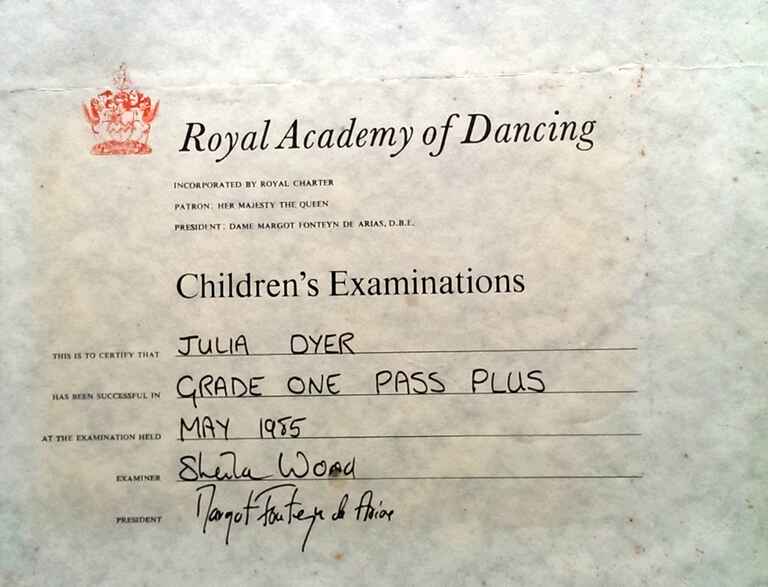 Royal Academy of Dancing
INCORPORATED BY ROYAL CHARTER
PATRON: HER MAJESTY THE QUEEN
PRESIDENT: DAME MARGOT FONTEYN DE ARIAS, D.B.E.
Children's Examinations
THIS IS TO CERTIFY THAT JULIA DYER
HAS BEEN SUCCESSFUL IN GRADE ONE PASS PLUS
AT THE EXAMINATION HELD MAY 1985
EXAMINER Sheila Wood
PRESIDENT Margot Fonteyn de Arias